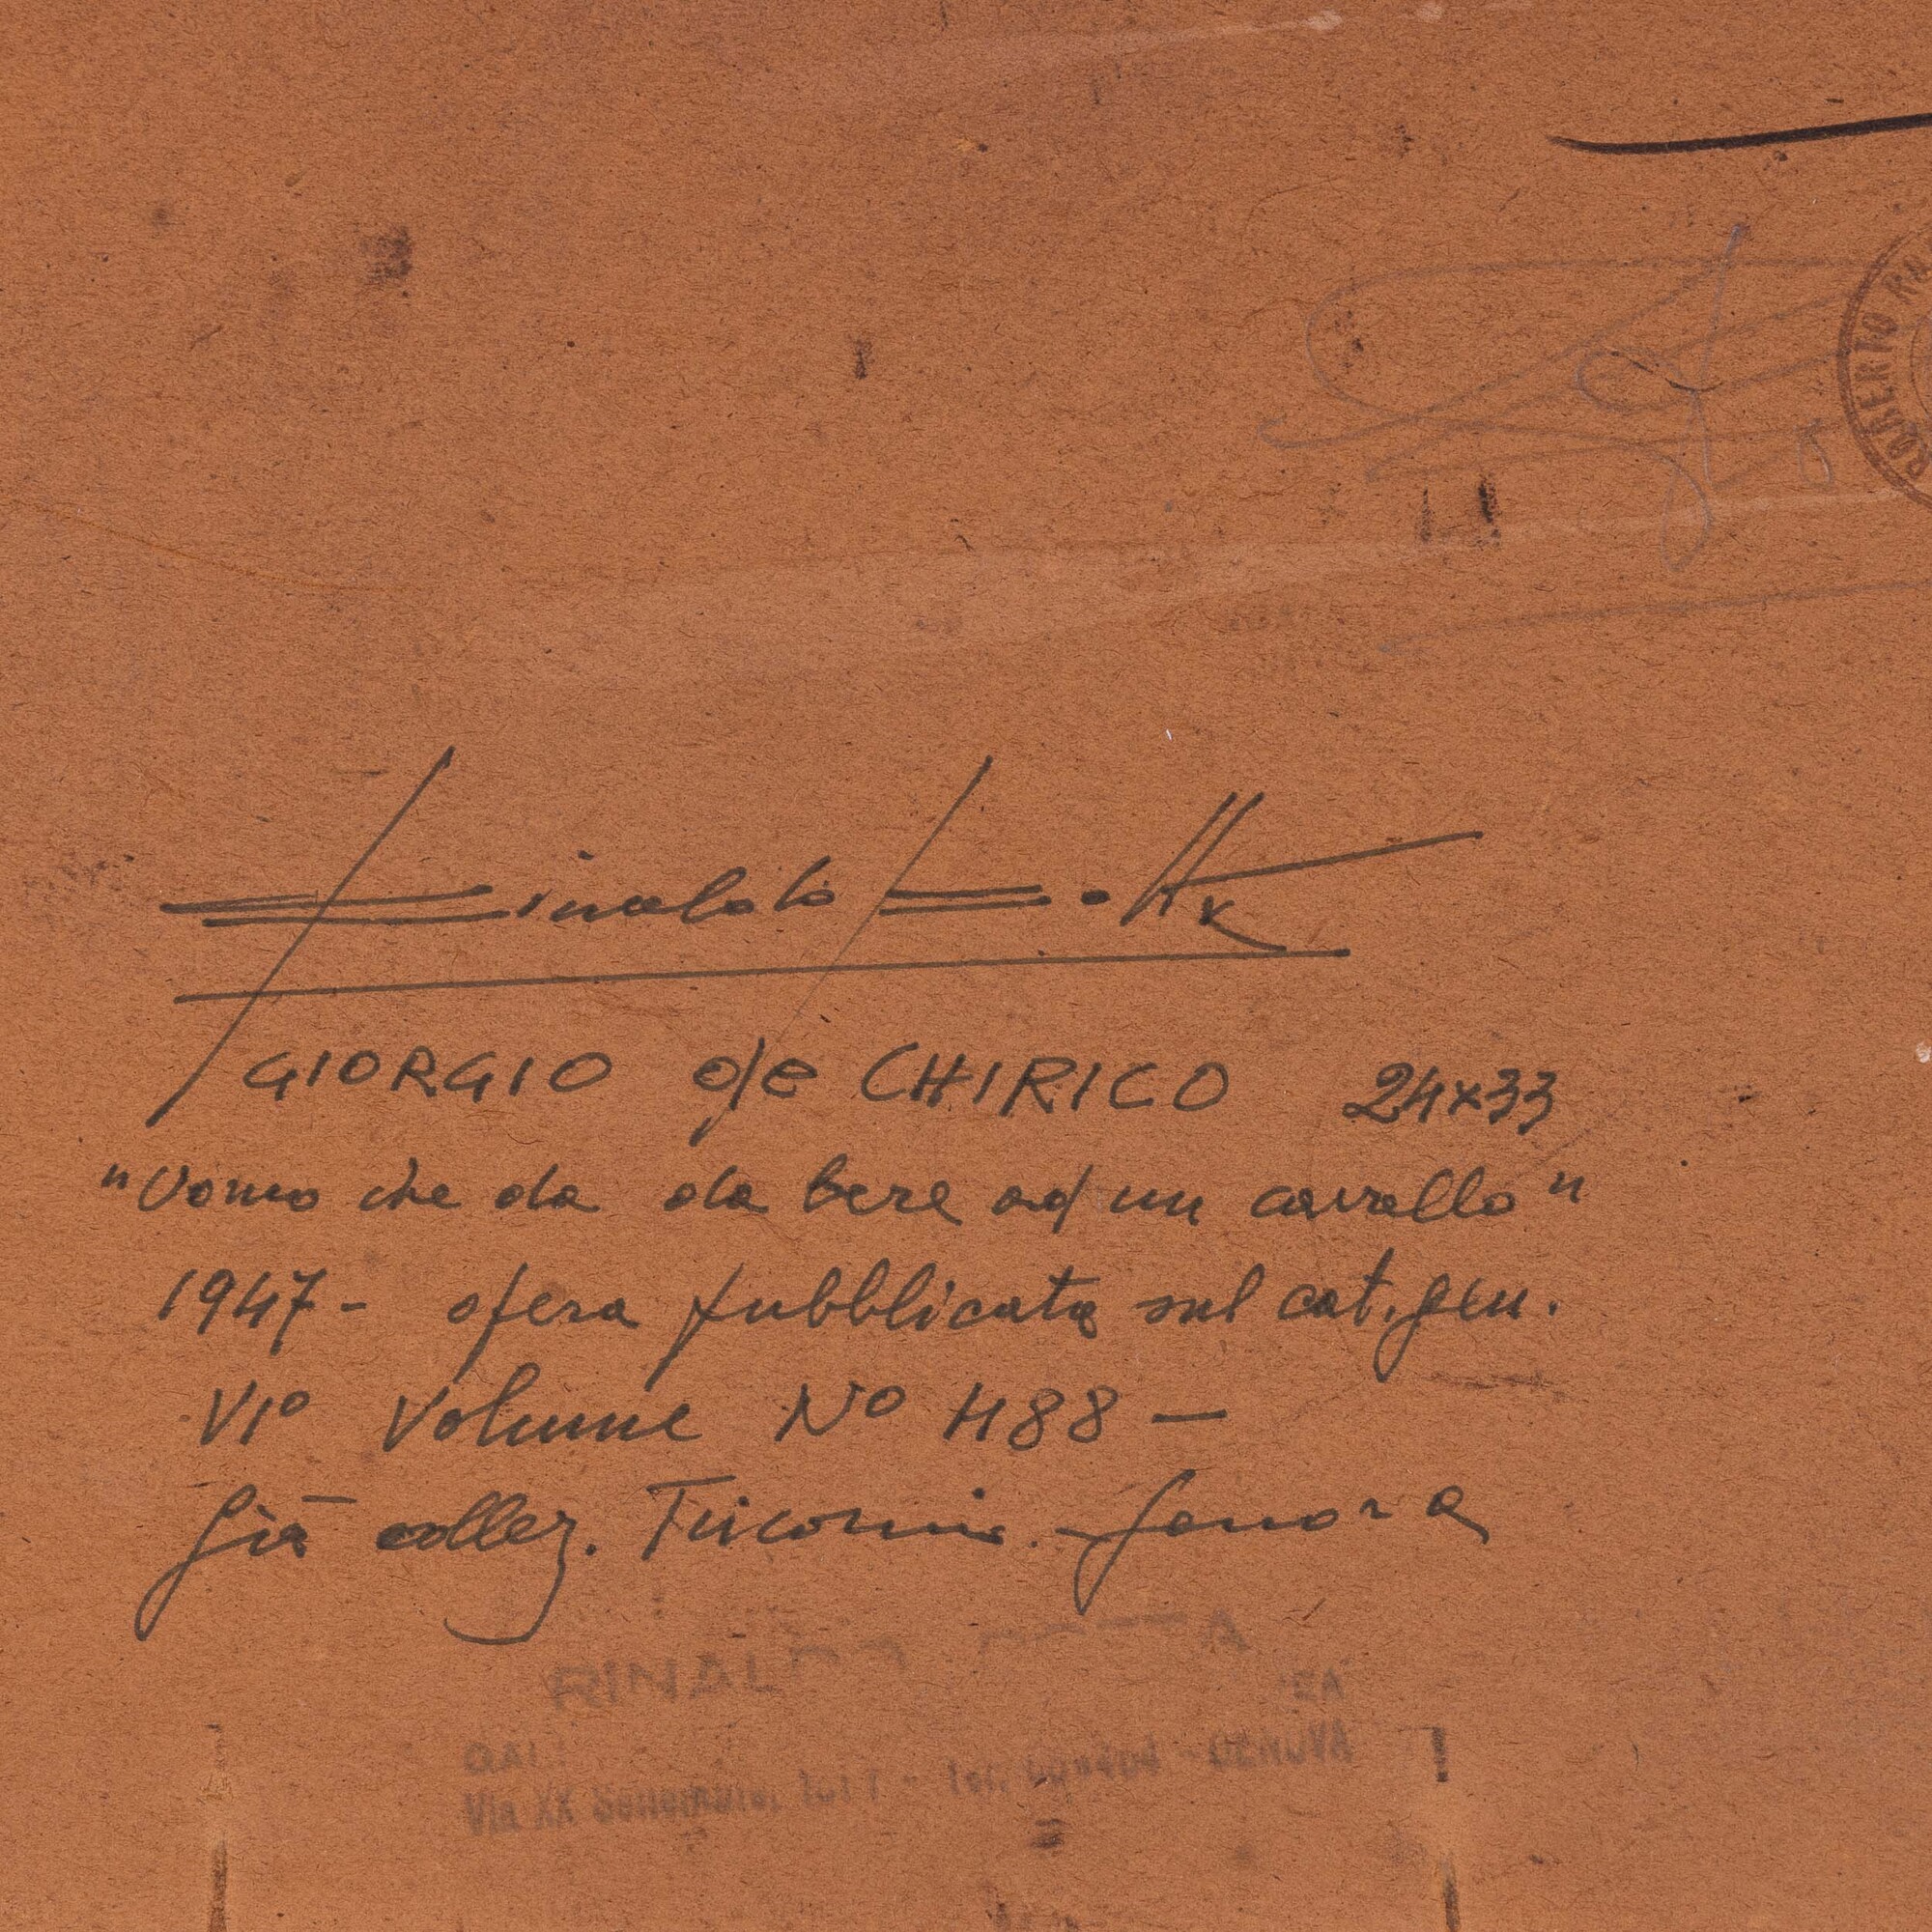 ROBERTO
Rinaldo Rotta
GIORGIO de CHIRICO 24x33
"Uomo che da da bere ad un cavallo"
1947 - opera pubblicata sul cat. gen.
VI° Volume N° 488 —
già collez. Tricomi. Genova
RINALDO
GAL
Via XX Settembre, - Tel. - GENOVA